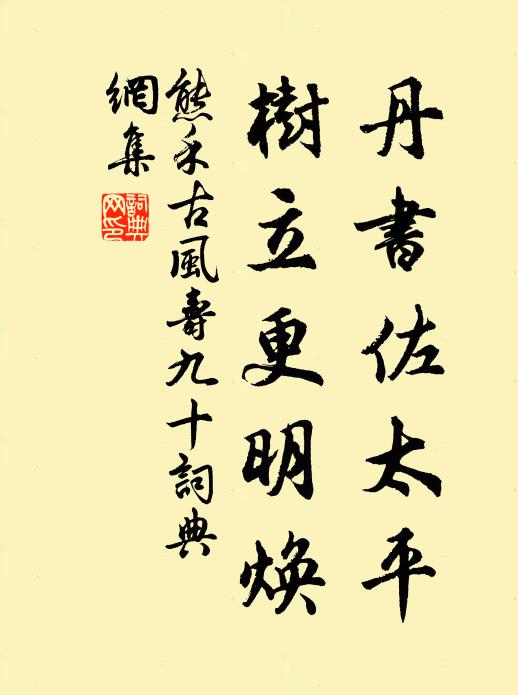 丹書佐太平
樹立更明煥
熊禾古風壽九十詞典
網集
詞典网印